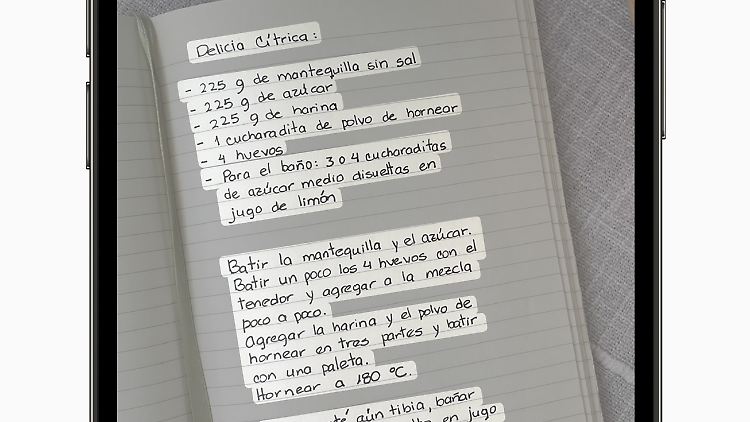 Delicia Cítrica:
- 225 g de mantequilla sin sal
- 225 g de azúcar
- 225 g de harina
- 1 cucharadita de polvo de hornear
- 4 huevos
- Para el baño: 3 o 4 cucharaditas
de azúcar medio disueltas en
jugo de limón
Batir la mantequilla y el azúcar.
Batir un poco los 4 huevos con el
tenedor y agregar a la mezcla
poco a poco.
Agregar la harina y el polvo de
hornear en tres partes y batir
con una paleta.
Hornear a 180 °C.
aún tibia, bañar
en jugo